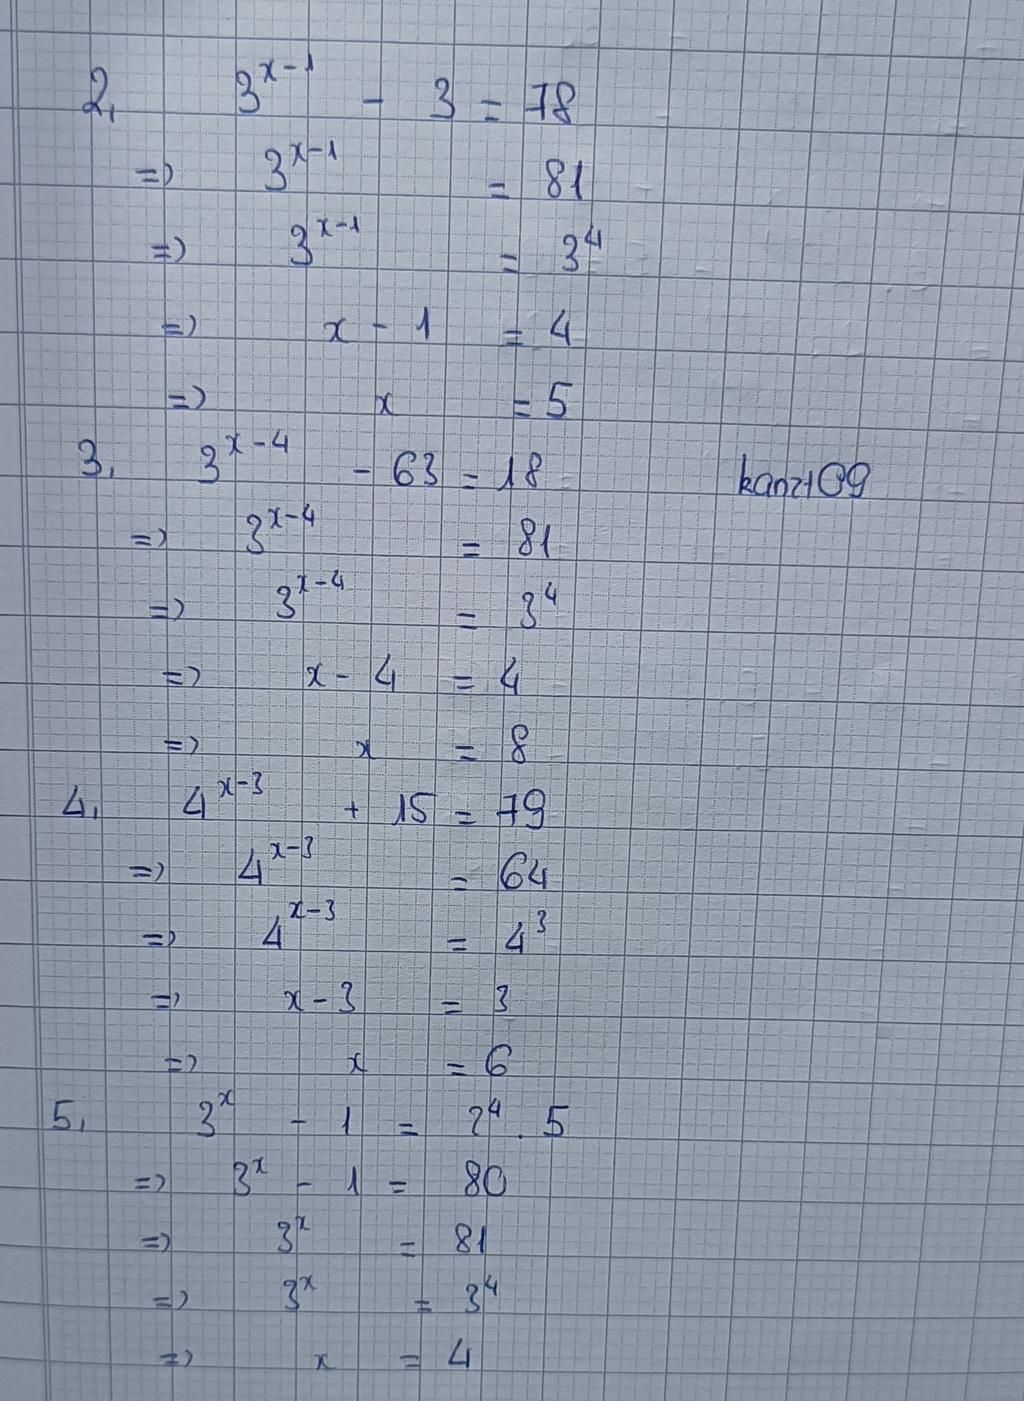 2, 3^{x-1} - 3 = 78
=> 3^{x-1} = 81
=> 3^{x-1} = 3^4
=> x - 1 = 4
=> x = 5
3, 3^{x-4} - 63 = 18
kanzt09
=> 3^{x-4} = 81
=> 3^{x-4} = 3^4
=> x - 4 = 4
=> x = 8
4, 4^{x-3} + 15 = 79
=> 4^{x-3} = 64
=> 4^{x-3} = 4^3
=> x - 3 = 3
=> x = 6
5, 3^x - 1 = 2^4 . 5
=> 3^x - 1 = 80
=> 3^x = 81
=> 3^x = 3^4
=> x = 4